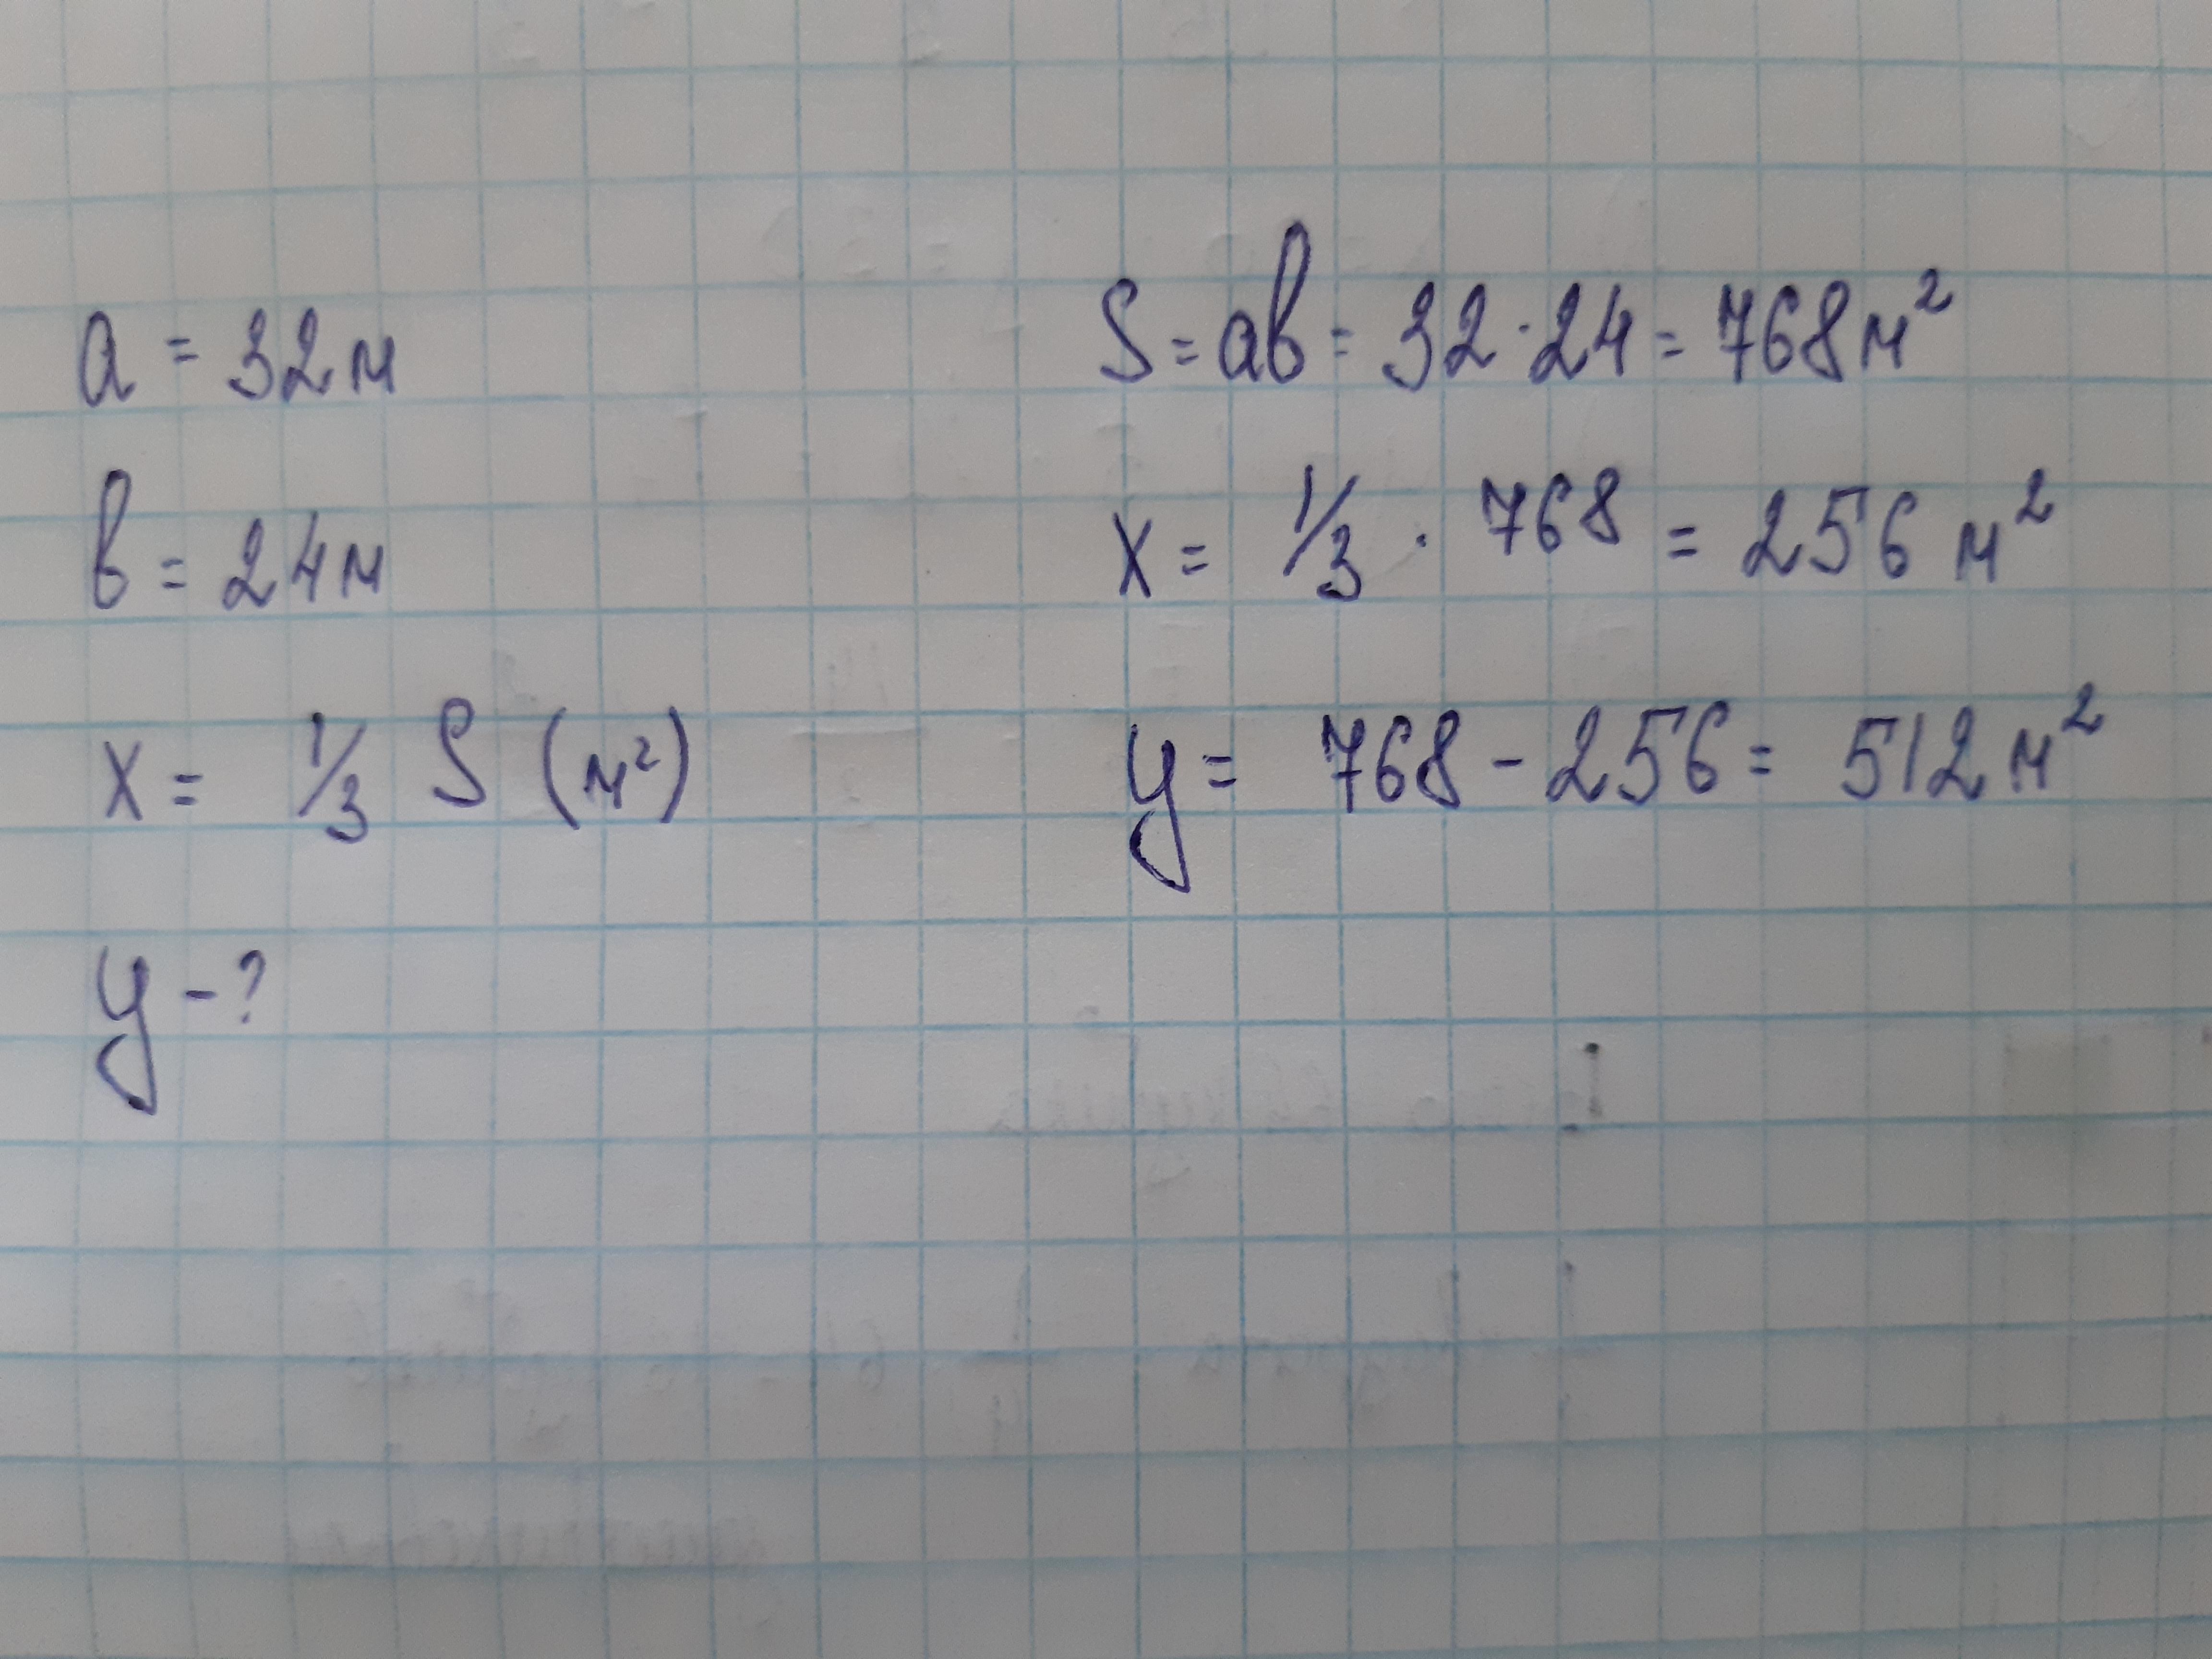 a = 32м
в = 24м
x = 1/3 S (м²)
y - ?
S = aв = 32 · 24 = 768м²
x = 1/3 · 768 = 256 м²
y = 768 - 256 = 512 м²